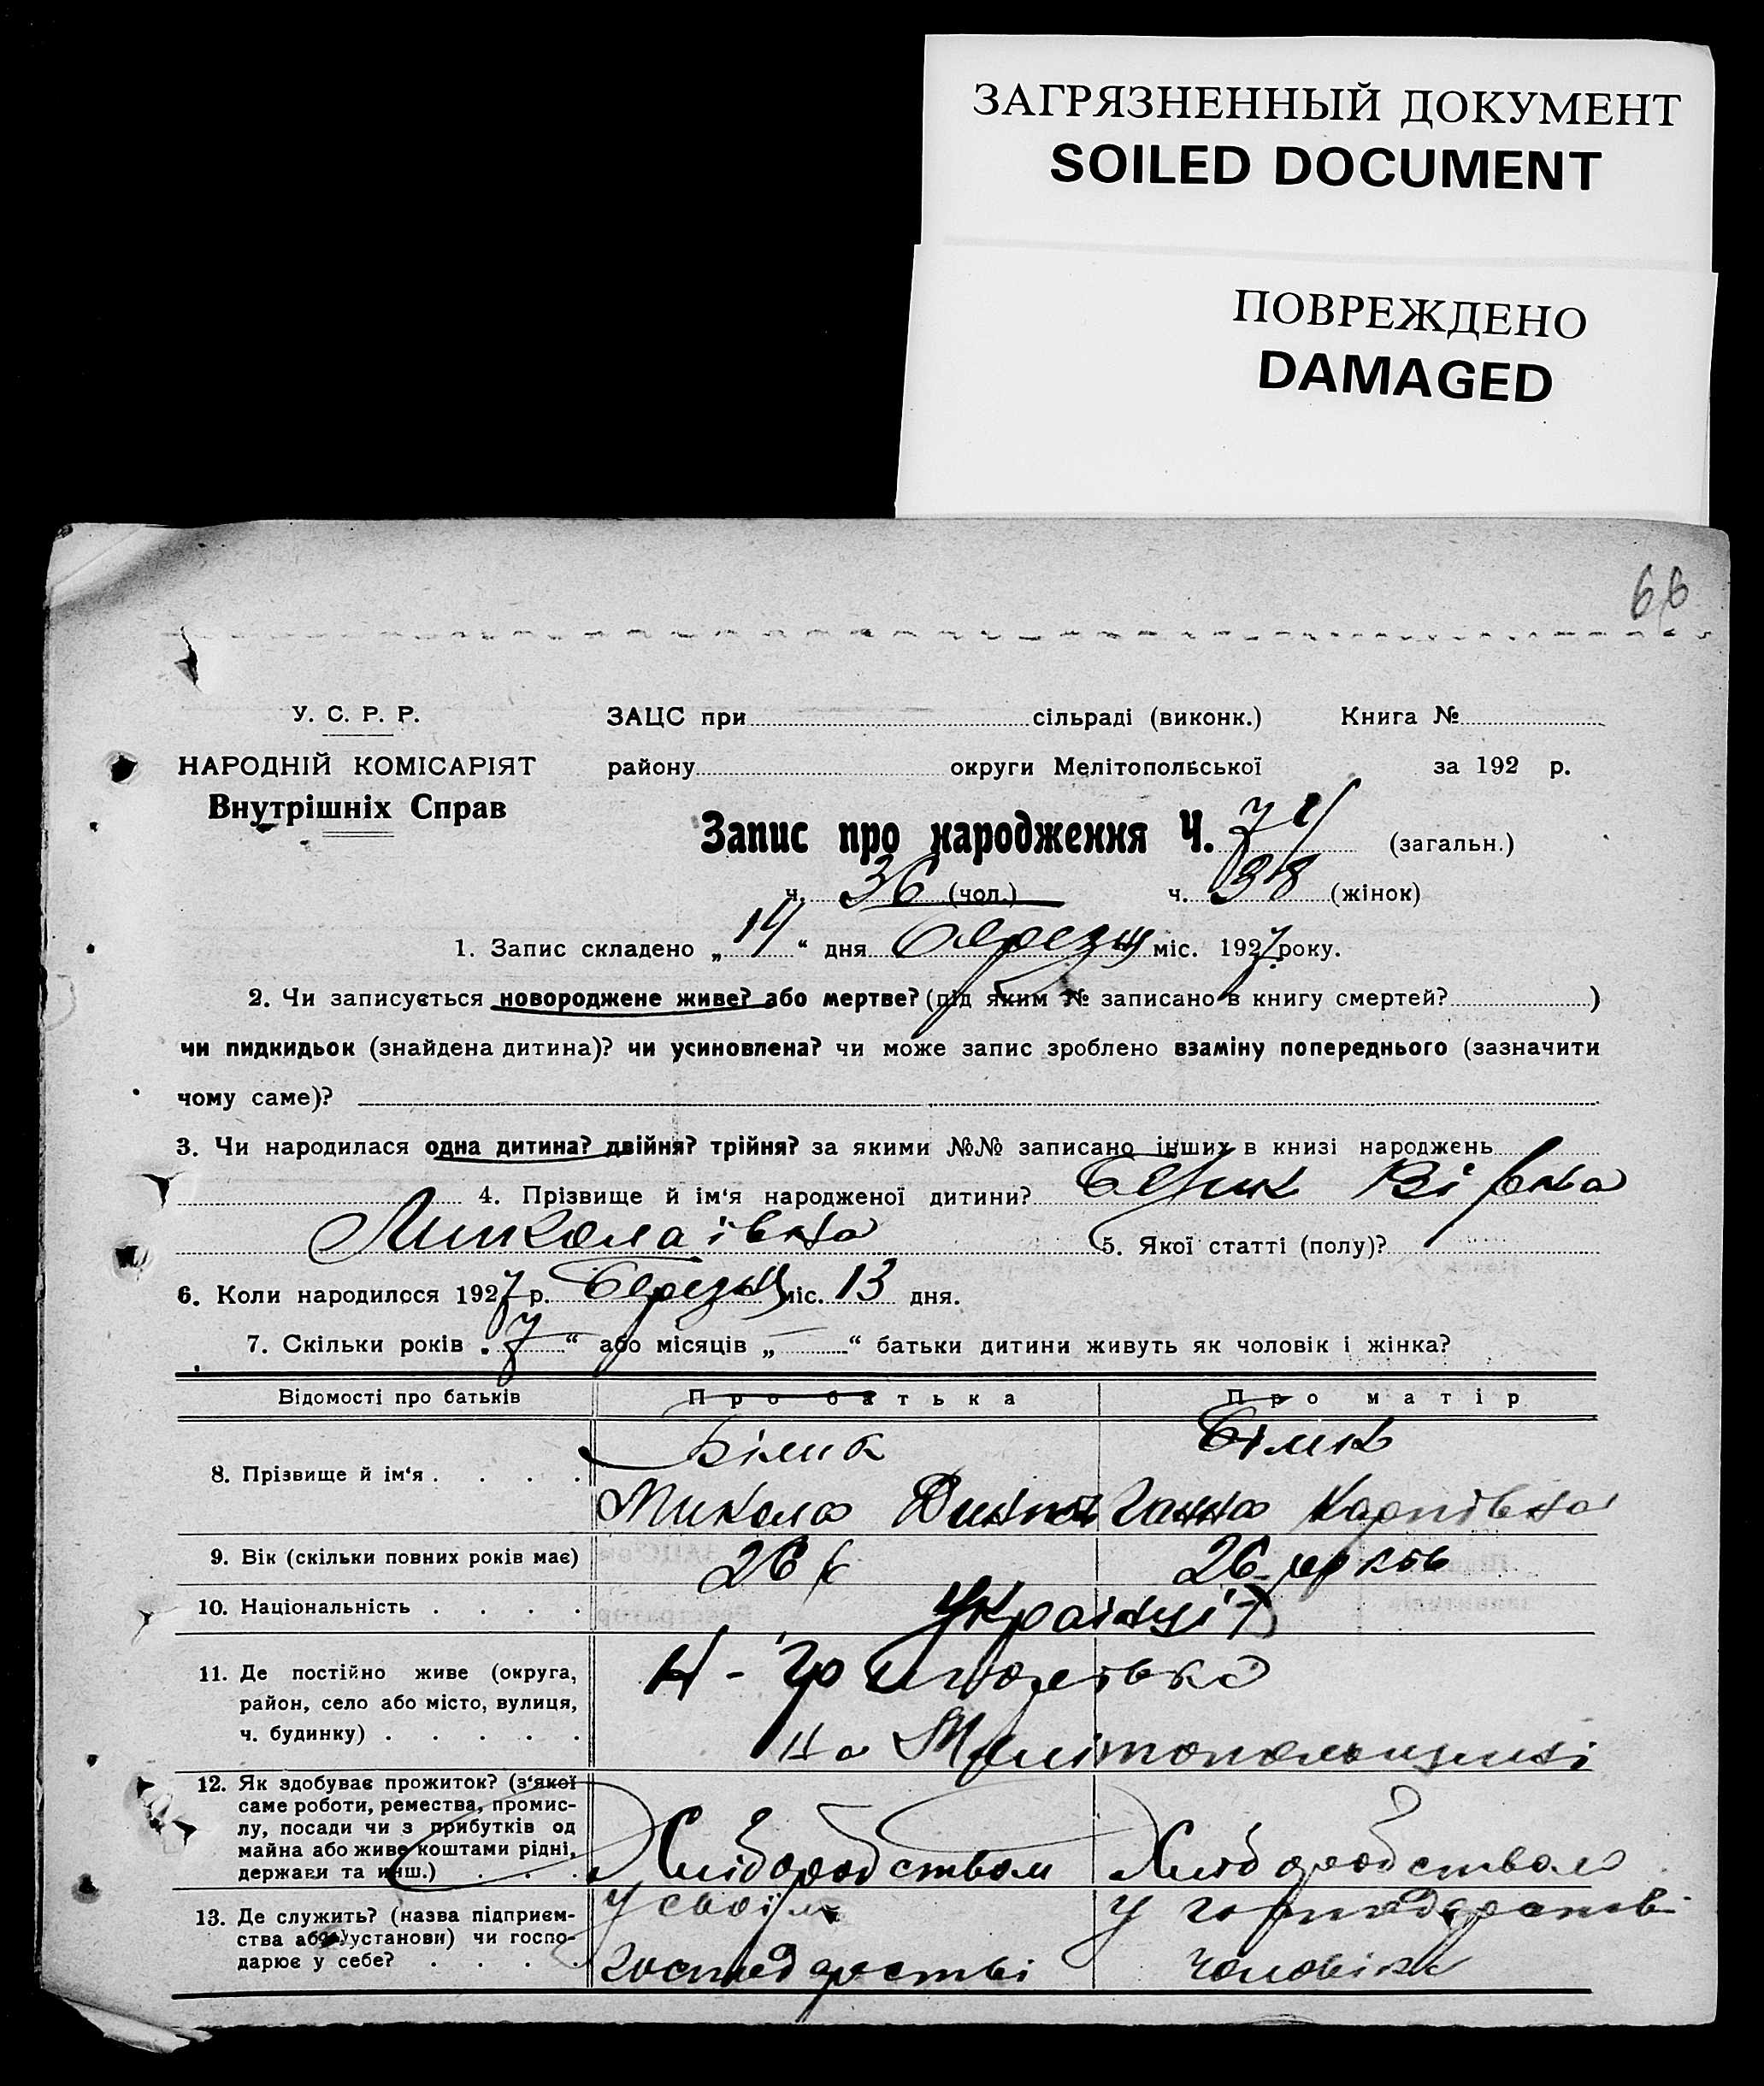 ЗАГРЯЗНЕННЫЙ ДОКУМЕНТ
SOILED DOCUMENT
ПОВРЕЖДЕНО
DAMAGED
66
У. С. Р. Р.
НАРОДНІЙ КОМІСАРІЯТ
Внутрішніх Справ
ЗАЦС при сільраді (виконк.) Книга №
району округи Мелітопольської за 192 р.
Запис про народження Ч. (загальн.)
ч. 36 (чол.) ч. 38 (жінок)
1. Запис складено „14“ дня березня міс. 1927 року.
2. Чи записується новороджене живе? або мертве? (під яким № записано в книгу смертей? )
чи пидкидьок (знайдена дитина)? чи усиновлена? чи може запис зроблено взаміну попереднього (зазначити
чому саме)?
3. Чи народилася одна дитина? двійня? трійня? за якими №№ записано інших в книзі народжень
4. Прізвище й ім‘я народженої дитини?
Миколаівна 5. Якої статті (полу)?
6. Коли народилося 1927 р. березня міс. 13 дня.
7. Скільки років „7“ або місяців „—“ батьки дитини живуть як чоловік і жінка?
Відомості про батьків Про батька Про матір
8. Прізвище й ім‘я . . . . Білик Білик
Микола Ганна Карпівна
9. Вік (скільки повних років має) 26 26 років
10. Національність . . . . Українці
11. Де постійно живе (округа,
район, село або місто, вулиця,
ч. будинку) . . . . .
на Мелітопольщині
12. Як здобуває прожиток? (з‘якої
саме роботи, ремества, промис-
лу, посади чи з прибутків од
майна або живе коштами рідні,
держави та инш.) . . . Хліборобством Хліборобством
13. Де служить? (назва підприєм-
ства або установи) чи госпо-
дарює у себе? . . . . У своїм господарстві У господарстві чоловіка